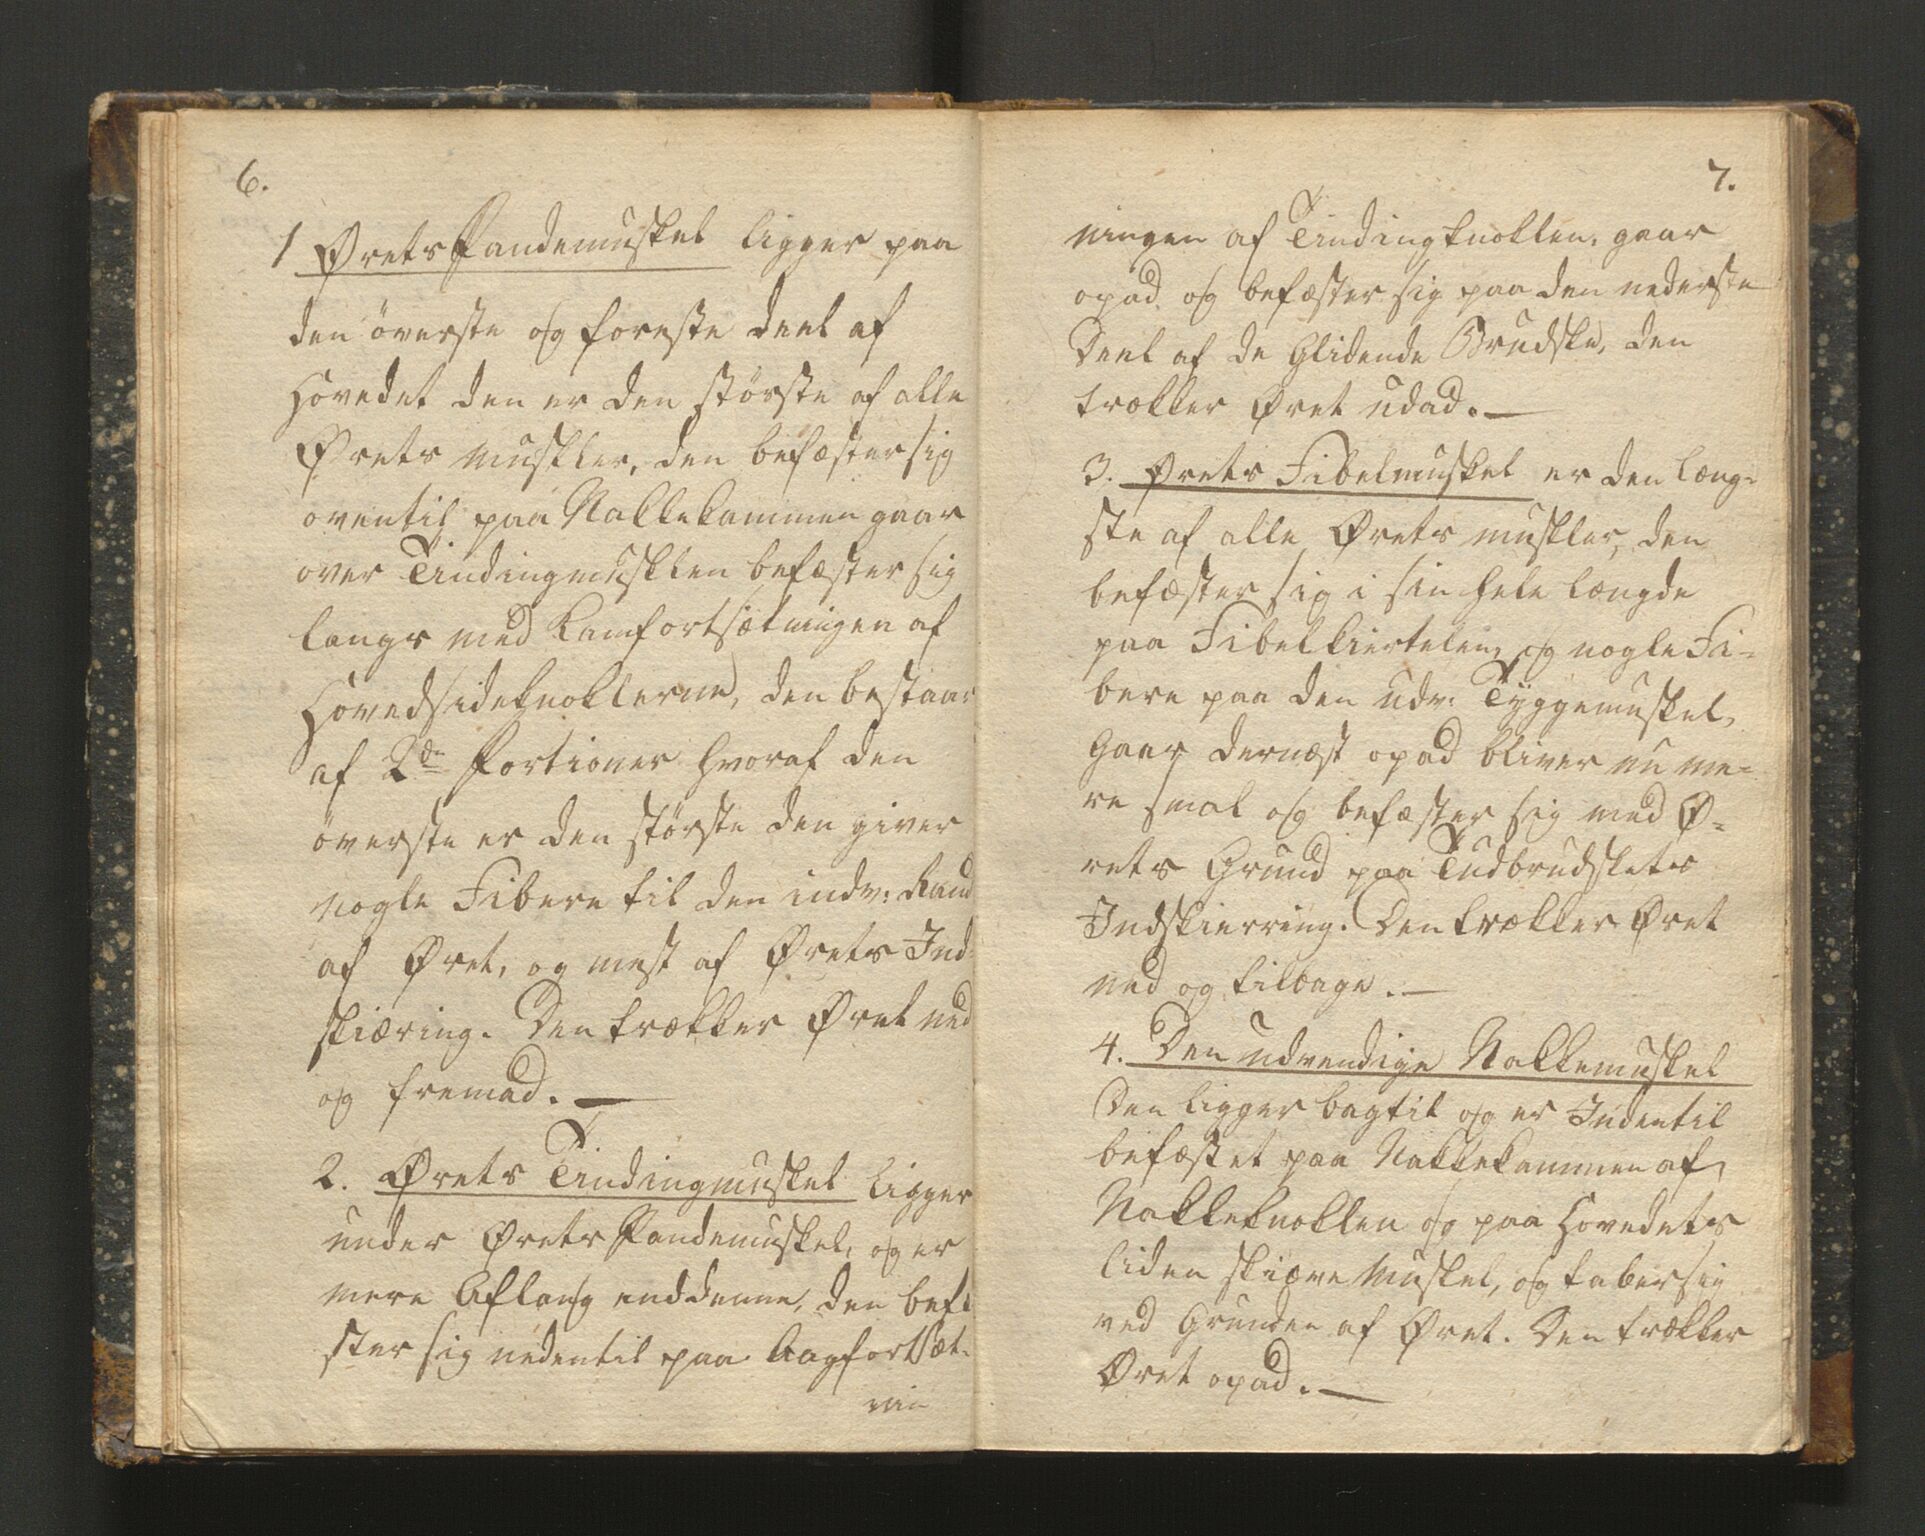 6.
1 Ørets Pandemuskel ligger paa
den överste og foreste deel af
Hovedet den er den störste af alle
Ørets muskler, den befæster sig
oventil paa Nakkekammen gaar
over Tindingmusklen befæster sig
langs med Kamfortsætningen af
Hovedsideknoklerne, den bestaar
af 2de Portioner hvoraf den
överste er den störste den giver
nogle Fibere til den indv: Rand
af Øret, og mest af Ørets Ind-
skiæring. Den trækker Øret ned
og fremad. —
2. Ørets Tindingmuskel ligger
under Ørets Pandemuskel, og er
mere Aflang end denne, den befæ
ster sig nedentil paa Aagfortsæt-
nin
7.
ningen af Tindingknoklen, gaar
opad og befæster sig paa den nederste
Deel af de Glidende Brudske, den
trækker Øret udad. —
3. Ørets Fibelmuskel er den læng-
ste af alle Ørets muskler, den
befæster sig i sin hele længde
paa Fibelkiertelen, og nogle Fi-
bere paa den udv: Tyggemuskel,
Gaar dernæst opad bliver nu me-
re smal og befæster sig med Ø-
rets Grund paa Tudbrudskets
Indskierring. Den trækker Øret
ned og tilbage. —
4. Den udvendige Nakkemuskel
Den ligger bagtil og er Indentil
befæstet paa Nakkekammen af
Nakkeknoklen og paa Hovedets
liden skiæve Muskel, og taber sig
ved Grunden af Øret. Den trækker
Øret opad. —